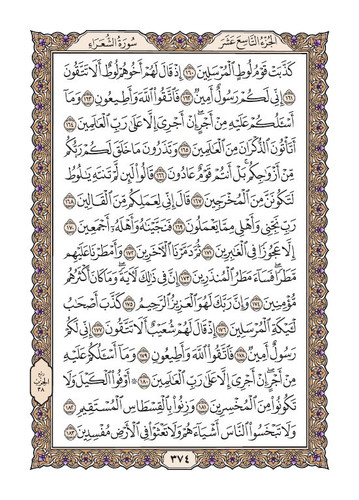 الجزء التاسع عشر
سورة الشعراء
كَذَّبَتْ قَوْمُ لُوطٍ الْمُرْسَلِينَ ١٦٠ إِذْ قَالَ لَهُمْ أَخُوهُمْ لُوطٌ أَلَا تَتَّقُونَ
١٦١ إِنِّي لَكُمْ رَسُولٌ أَمِينٌ ١٦٢ فَاتَّقُوا اللَّهَ وَأَطِيعُونِ ١٦٣ وَمَا
أَسْأَلُكُمْ عَلَيْهِ مِنْ أَجْرٍ إِنْ أَجْرِيَ إِلَّا عَلَى رَبِّ الْعَالَمِينَ ١٦٤
أَتَأْتُونَ الذُّكْرَانَ مِنَ الْعَالَمِينَ ١٦٥ وَتَذَرُونَ مَا خَلَقَ لَكُمْ رَبُّكُمْ
مِنْ أَزْوَاجِكُمْ بَلْ أَنْتُمْ قَوْمٌ عَادُونَ ١٦٦ قَالُوا لَئِنْ لَمْ تَنْتَهِ يَا لُوطُ
لَتَكُونَنَّ مِنَ الْمُخْرَجِينَ ١٦٧ قَالَ إِنِّي لِعَمَلِكُمْ مِنَ الْقَالِينَ ١٦٨
رَبِّ نَجِّنِي وَأَهْلِي مِمَّا يَعْمَلُونَ ١٦٩ فَنَجَّيْنَاهُ وَأَهْلَهُ أَجْمَعِينَ ١٧٠
إِلَّا عَجُوزًا فِي الْغَابِرِينَ ١٧١ ثُمَّ دَمَّرْنَا الْآخَرِينَ ١٧٢ وَأَمْطَرْنَا عَلَيْهِمْ
مَطَرًا فَسَاءَ مَطَرُ الْمُنْذَرِينَ ١٧٣ إِنَّ فِي ذَلِكَ لَآيَةً وَمَا كَانَ أَكْثَرُهُمْ
مُؤْمِنِينَ ١٧٤ وَإِنَّ رَبَّكَ لَهُوَ الْعَزِيزُ الرَّحِيمُ ١٧٥ كَذَّبَ أَصْحَابُ
لْئَيْكَةِ الْمُرْسَلِينَ ١٧٦ إِذْ قَالَ لَهُمْ شُعَيْبٌ أَلَا تَتَّقُونَ ١٧٧ إِنِّي لَكُمْ
رَسُولٌ أَمِينٌ ١٧٨ فَاتَّقُوا اللَّهَ وَأَطِيعُونِ ١٧٩ وَمَا أَسْأَلُكُمْ عَلَيْهِ
مِنْ أَجْرٍ إِنْ أَجْرِيَ إِلَّا عَلَى رَبِّ الْعَالَمِينَ ١٨٠ أَوْفُوا الْكَيْلَ وَلَا
تَكُونُوا مِنَ الْمُخْسِرِينَ ١٨١ وَزِنُوا بِالْقِسْطَاسِ الْمُسْتَقِيمِ ١٨٢
وَلَا تَبْخَسُوا النَّاسَ أَشْيَاءَهُمْ وَلَا تَعْثَوْا فِي الْأَرْضِ مُفْسِدِينَ ١٨٣
الحزب
٣٨
٣٧٤